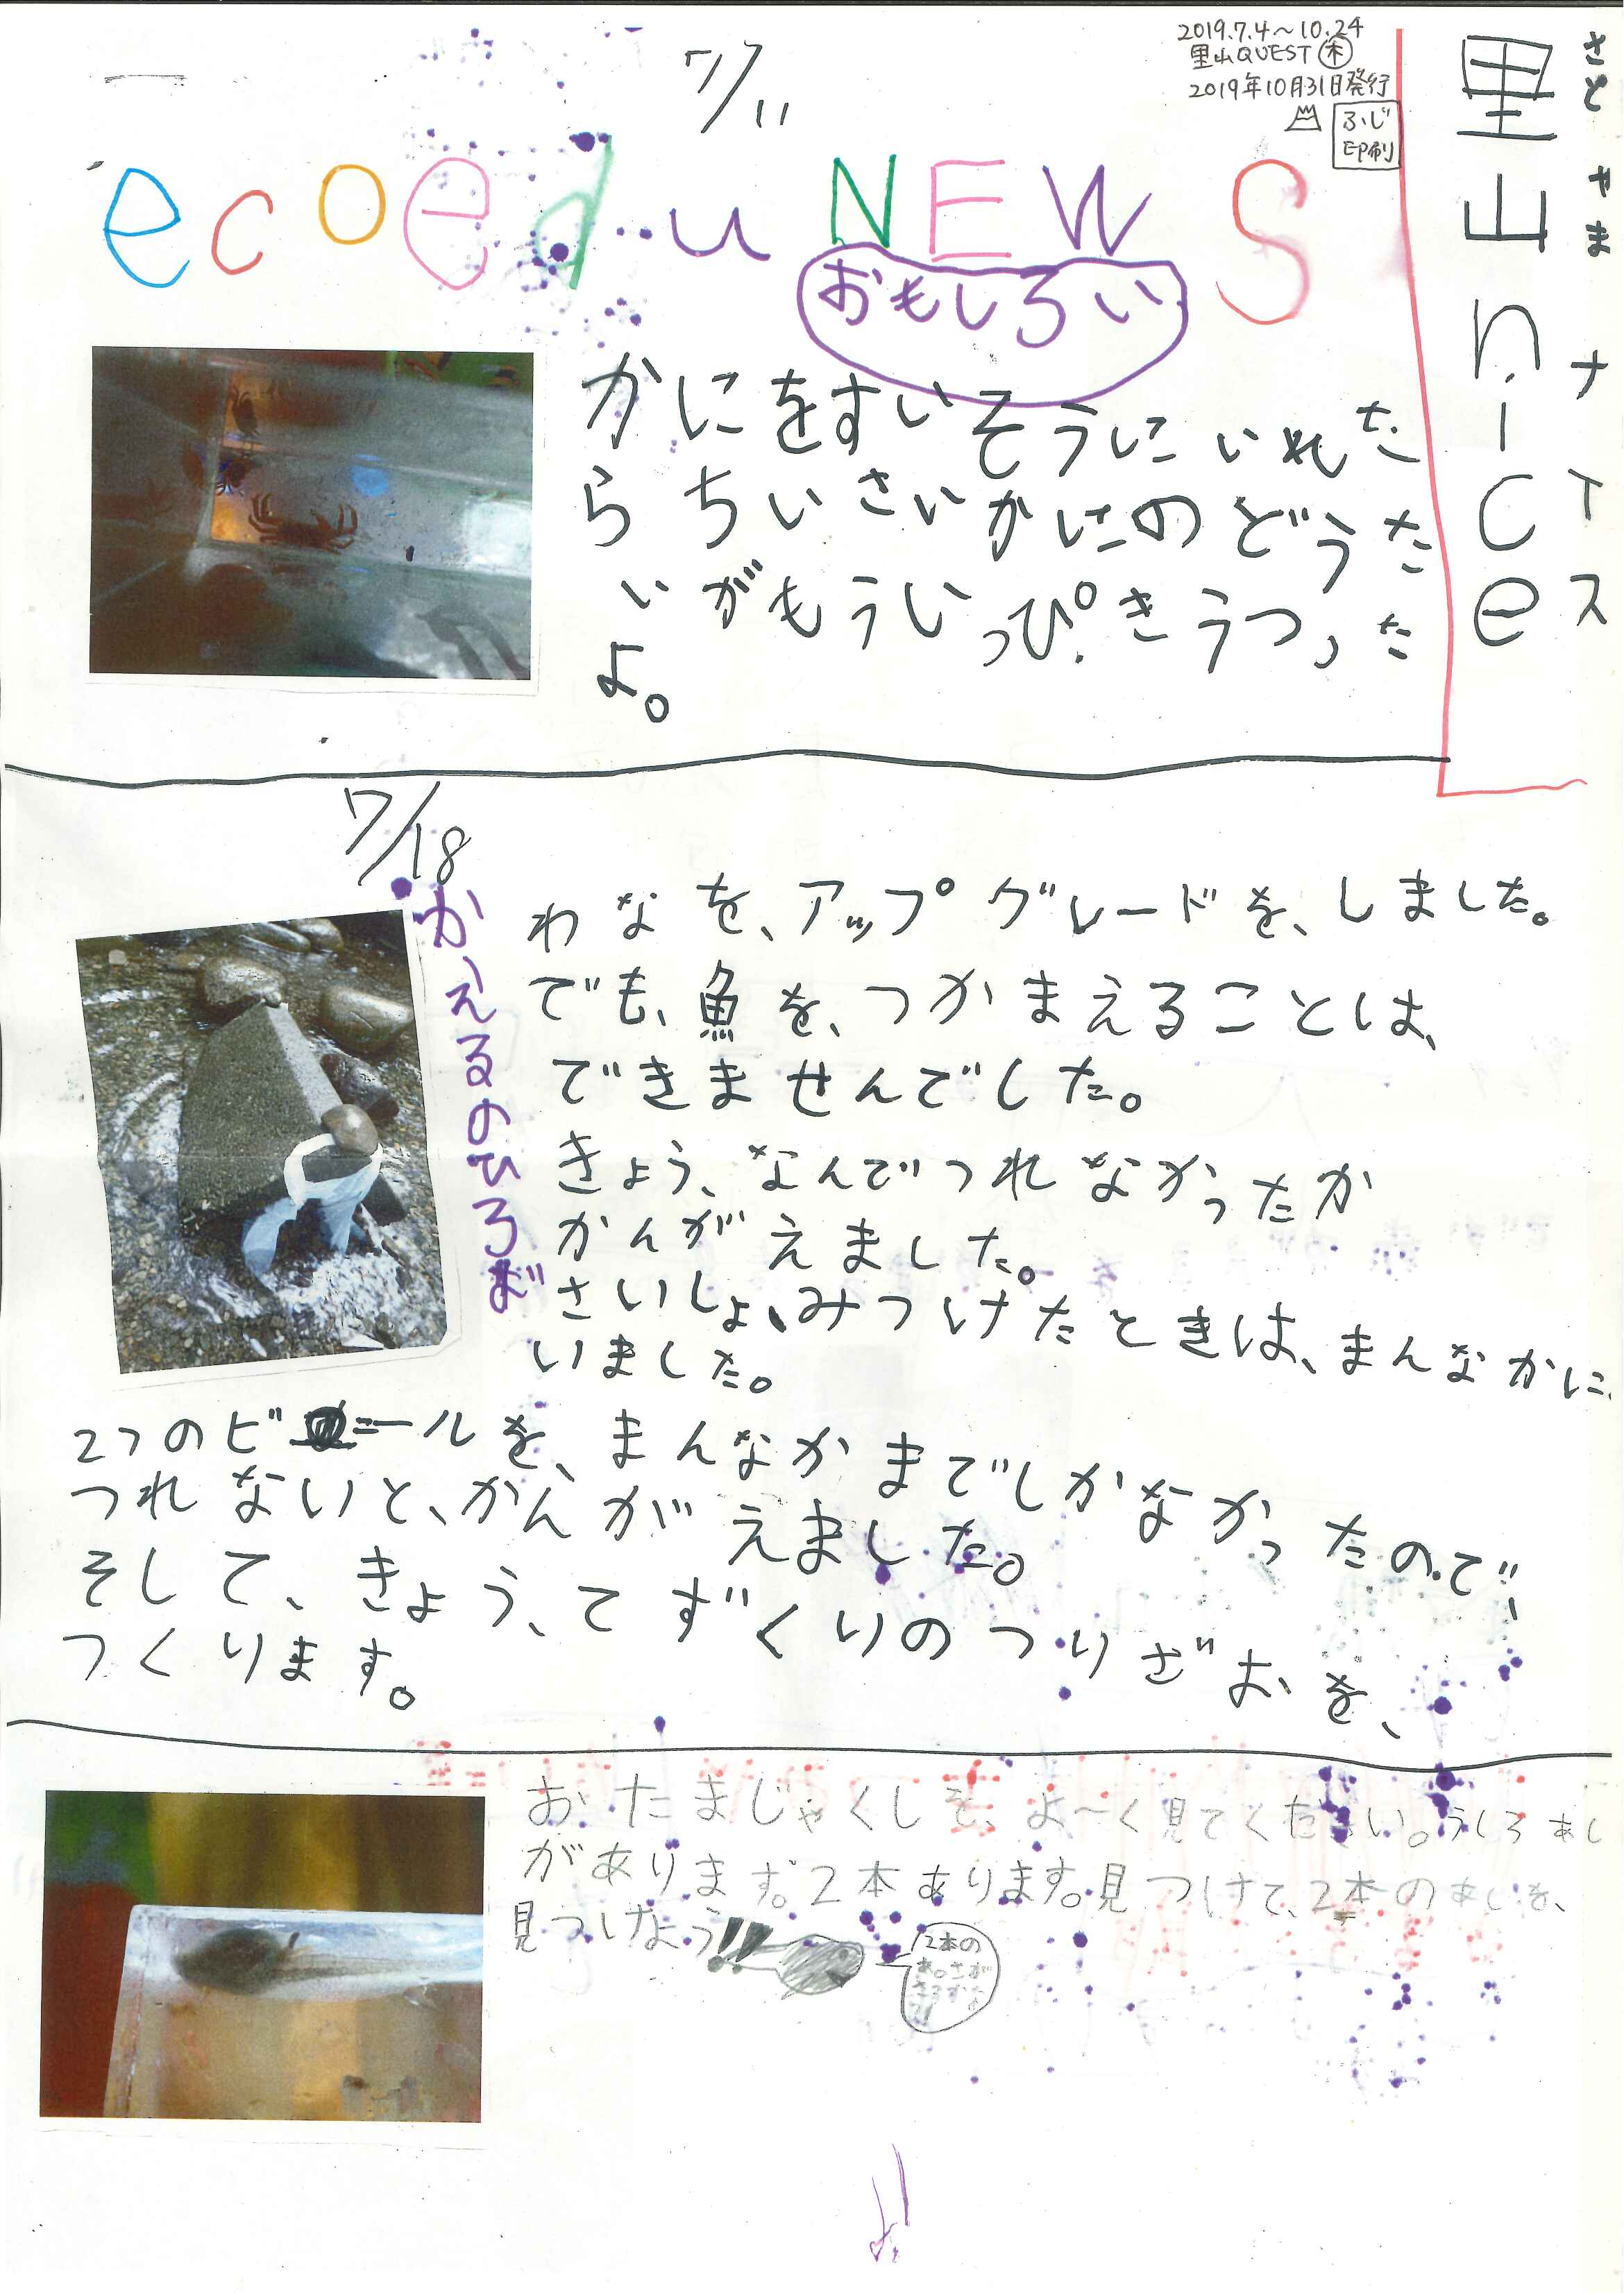 里山nice
さとやま ナイス
2019.7.4～10.24
里山QUEST 木
2019年10月31日発行
ふじ
印刷
7/11
ecoedu NEWS
おもしろい
かにをすいそうにいれた
らちいさいかにのどうた
いがもういっぴきうつった
よ。
7/18
かえるのひろば
わなを、アップグレードを、しました。
でも、魚を、つかまえることは、
できませんでした。
きょう、なんでつれなかったか
かんがえました。
さいしょ、みつけたときは、まんなかに
いました。
2つのビニールを、まんなかまでしかなかったので、
つれないと、かんがえました。
そして、きょう、てずくりのつりざおを、
つくります。
おたまじゃくしを、よ～く見てください。うしろあし
があります。2本あります。見つけて、2本のあしを、
見つけよう!!
2本の